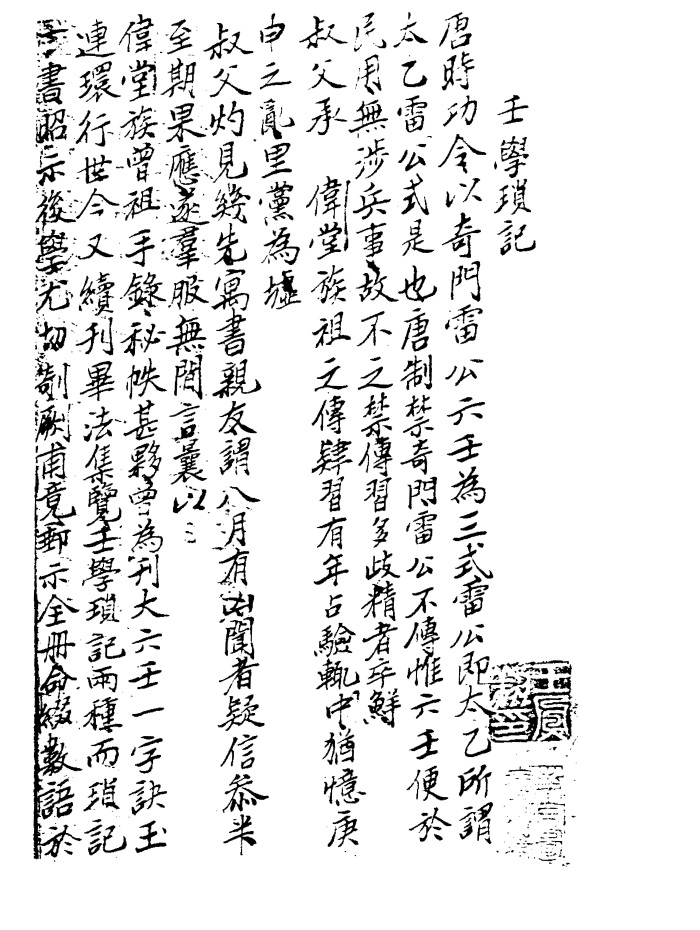 壬學瑣記
唐時功令以奇門雷公六壬為三式雷公即太乙所謂
太乙雷公式是也唐制禁奇門雷公不傳惟六壬便於
民用無涉兵事故不之禁傳習多歧精者卒鮮
叔父承　偉堂族祖之傳肄習有年占驗輒中猶憶庚
申之亂里黨為墟
叔父灼見幾先寓書親友謂八月有凶聞者疑信叅半
至期果應遂羣服無間言曩以
偉堂族曾祖手錄秘帙甚夥曾為刊大六壬一字訣玉
連環行世今又續刊畢法集覽壬學瑣記兩種而瑣記
一書昭示後學尤切剞劂甫竟郵示全冊命綴數語於